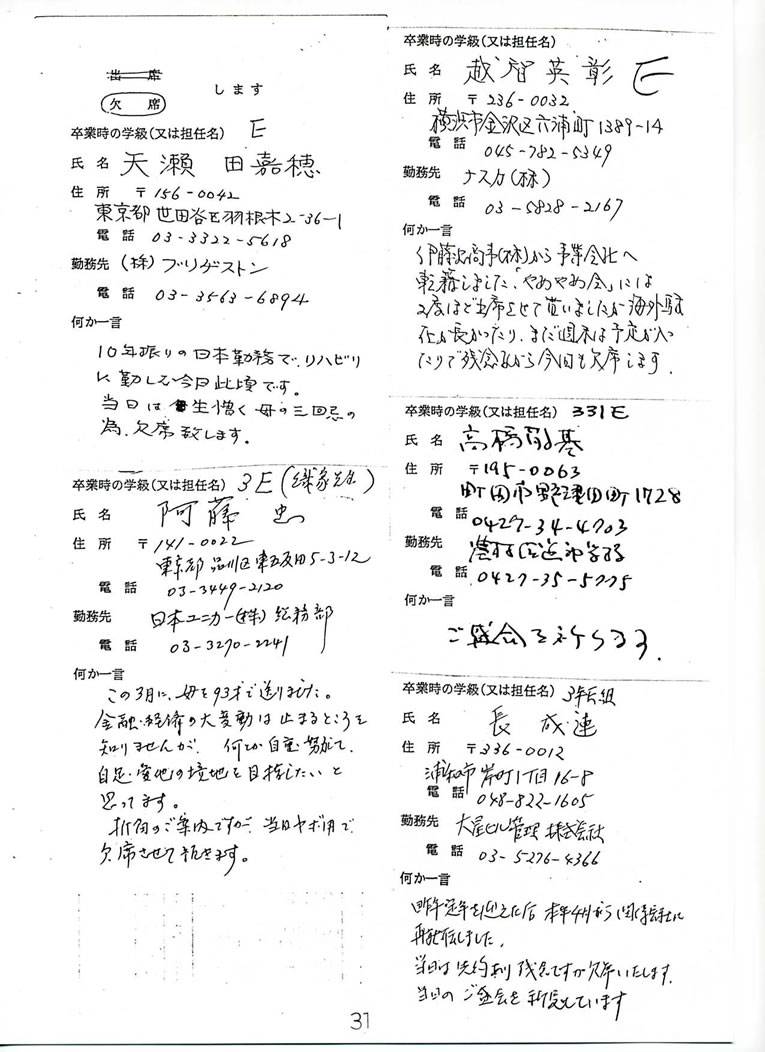 出席
欠席
します
卒業時の学級(又は担任名) E
氏名 天瀬 田嘉穂
住所 〒156-0042
東京都世田谷区羽根木2-36-1
電話 03-3322-5618
勤務先 (株)ブリヂストン
電話 03-3563-6894
何か一言
10年振りの日本勤務で、リハビリ
に勤しむ今日此頃です。
当日は生憎く母の三回忌の
為、欠席致します。
卒業時の学級(又は担任名) 3E
氏名 阿藤 忠
住所 〒141-0022
東京都品川区東五反田5-3-12
電話 03-3449-2120
勤務先 日本ユニカー(株)総務部
電話 03-3270-2241
何か一言
この3月に、母を93才で送りました。
金融・経済の大変動は止まるところを
知りませんが、何とか自重・努力して、
自足・安心の境地を目指したいと
思ってます。
折角のご案内ですが、当日ヤボ用で
欠席させて頂きます。
卒業時の学級(又は担任名)
氏名 越智英彰 E
住所 〒236-0032
横浜市金沢区六浦町1389-14
電話 045-782-5349
勤務先 ナスカ(株)
電話 03-5828-2167
何か一言
伊藤忠商事(株)から事業会社へ
転籍しました。「やあやあ会」には
2度ほど出席させて貰いましたが海外駐
在が長かったり、まだ週末は予定が入っ
たりで残念ながら今回も欠席します.
卒業時の学級(又は担任名) 331E
氏名 高橋
住所 〒195-0063
町田市野津田町1728
電話 0427-34-4703
勤務先
電話 0427-35-5775
何か一言
ご盛会を祈ります.
卒業時の学級(又は担任名) 3年E組
氏名 長 成連
住所 〒336-0012
浦和市岸町1丁目16-8
電話 048-822-1605
勤務先 大星ビル管理株式会社
電話 03-5276-4366
何か一言
昨年定年を迎えた后 本年4月から関係会社に
再就職しました.
当日は先約有り残念ですが欠席いたします.
当日のご盛会を祈念しています
31